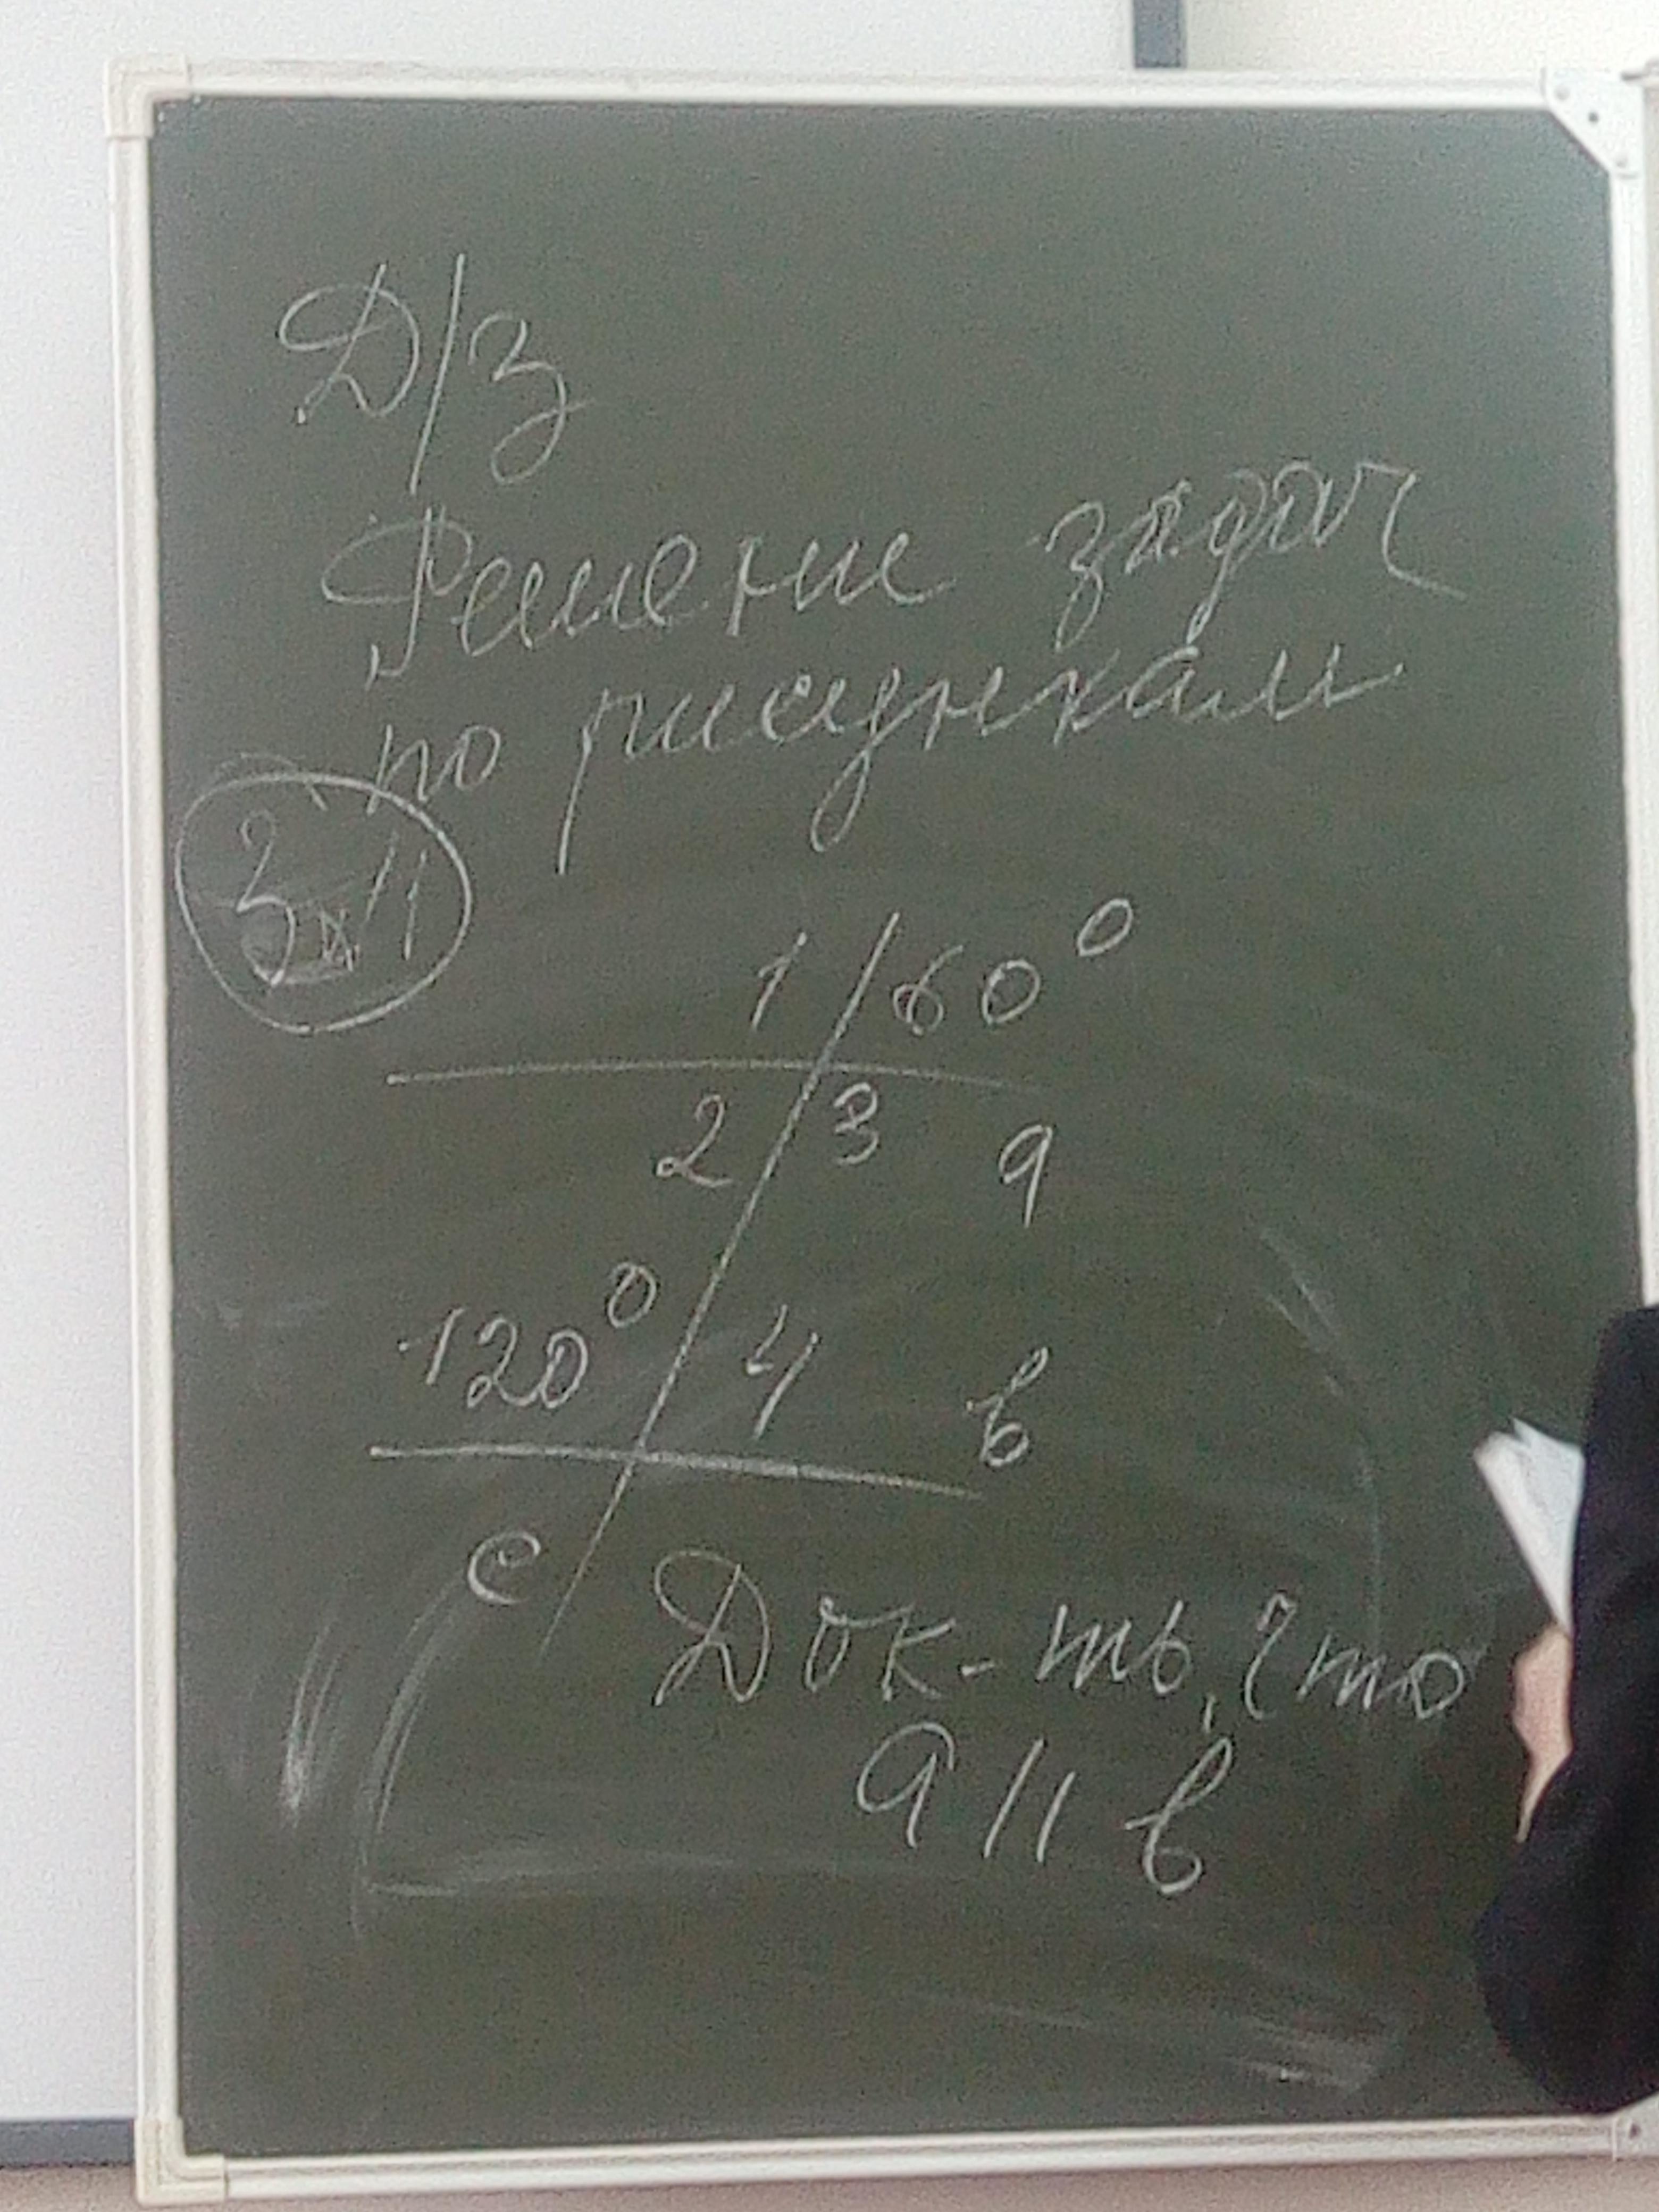 Д/з
Решение задач
по рисункам
1 60°
2 3 a
120° 4 в
c
Док-ть, что
a || в